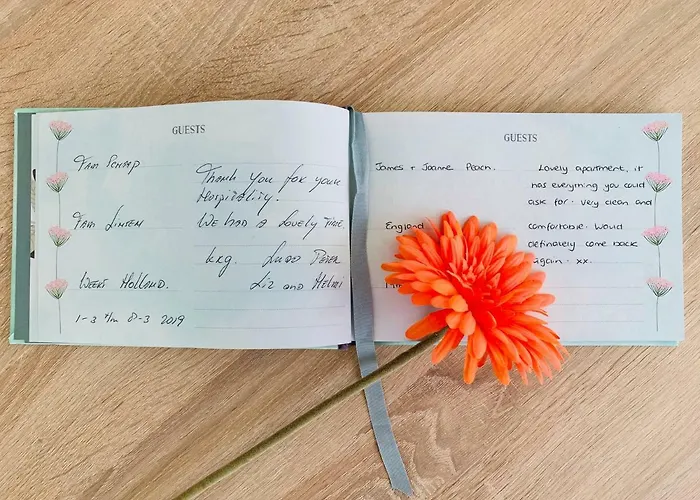 GUESTS
Fam Schaap
Thank you for your
Hospitality.
Fam Linten
We had a lovely time.
krg. Ludo Peter
Weert Holland.
Liz and Helmi
1-3 t/m 8-3 2019
GUESTS
James + Joanne Peach.
Lovely apartment, it
has everything you could
ask for. Very clean and
England
comfortable. Would
definately come back
again. xx.